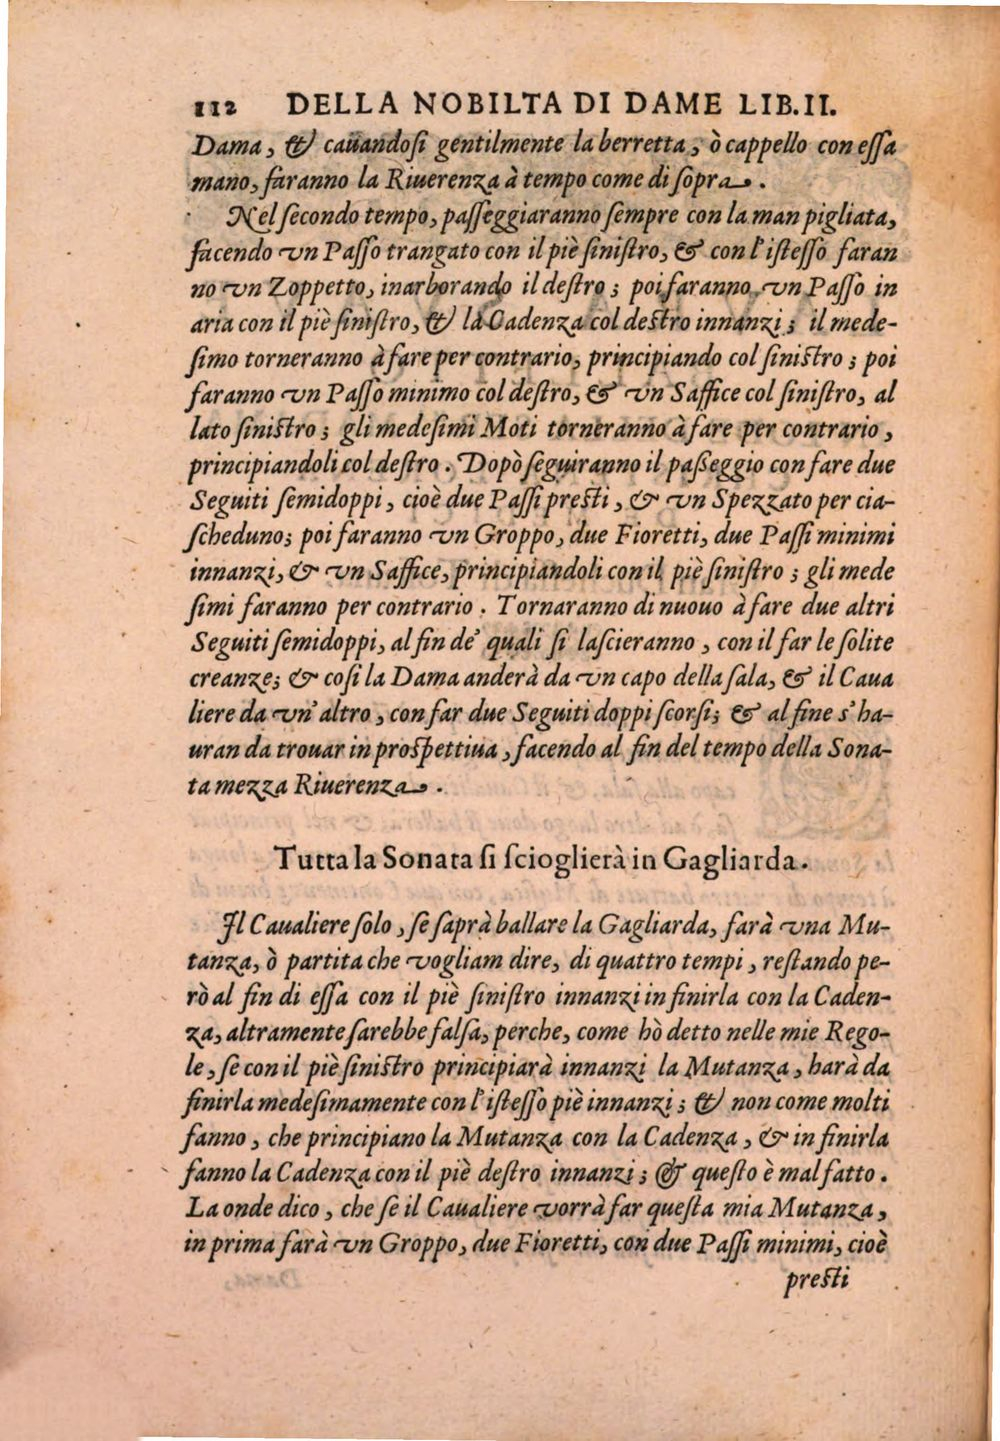 112 DELLA NOBILTA DI DAME LIB.II.
Dama, & cauandosi gentilmente la berretta, ò cappello con essa
mano, faranno la Riuerenza à tempo come di sopra.
Nel secondo tempo, passeggiaranno sempre con la man pigliata,
facendo vn Passo trangato con il piè sinistro, & con l'istesso faran
no vn Zoppetto, inarborando il destro; poi faranno vn Passo in
aria con il piè sinistro, & la Cadenza col destro innanzi; il mede-
simo torneranno à fare per contrario, principiando col sinistro; poi
faranno vn Passo minimo col destro, & vn Saffice col sinistro, al
lato sinistro; gli medesimi Moti torneranno à fare per contrario,
principiandoli col destro. Dopò seguiranno il paßeggio con fare due
Seguiti semidoppi, cioè due Passi presti, & vn Spezzato per cia-
scheduno; poi faranno vn Groppo, due Fioretti, due Passi minimi
innanzi, & vn Saffice, principiandoli con il piè sinistro; gli mede
simi faranno per contrario. Tornaranno di nuouo à fare due altri
Seguiti semidoppi, al fin de' quali si lascieranno, con il far le solite
creanze; & cosi la Dama anderà da vn capo della sala, & il Caua
liere da vn' altro, con far due Seguiti doppi scorsi; & al fine s'ha-
uran da trouar in prospettiua, facendo al fin del tempo della Sona-
ta mezza Riuerenza.
Tutta la Sonata si scioglierà in Gagliarda.
Il Caualiere solo, se saprà ballare la Gagliarda, farà vna Mu-
tanza, ò partita che vogliam dire, di quattro tempi, restando pe-
rò al fin di essa con il piè sinistro innanzi in finirla con la Caden-
za, altramente sarebbe falsa, perche, come hò detto nelle mie Rego-
le, se con il piè sinistro principiarà innanzi la Mutanza, harà da
finirla medesimamente con l'istesso piè innanzi; & non come molti
fanno, che principiano la Mutanza con la Cadenza, & in finirla
fanno la Cadenza con il piè destro innanzi; & questo è mal fatto.
La onde dico, che se il Caualiere vorrà far questa mia Mutanza,
in prima farà vn Groppo, due Fioretti, con due Passi minimi, cioè
presti